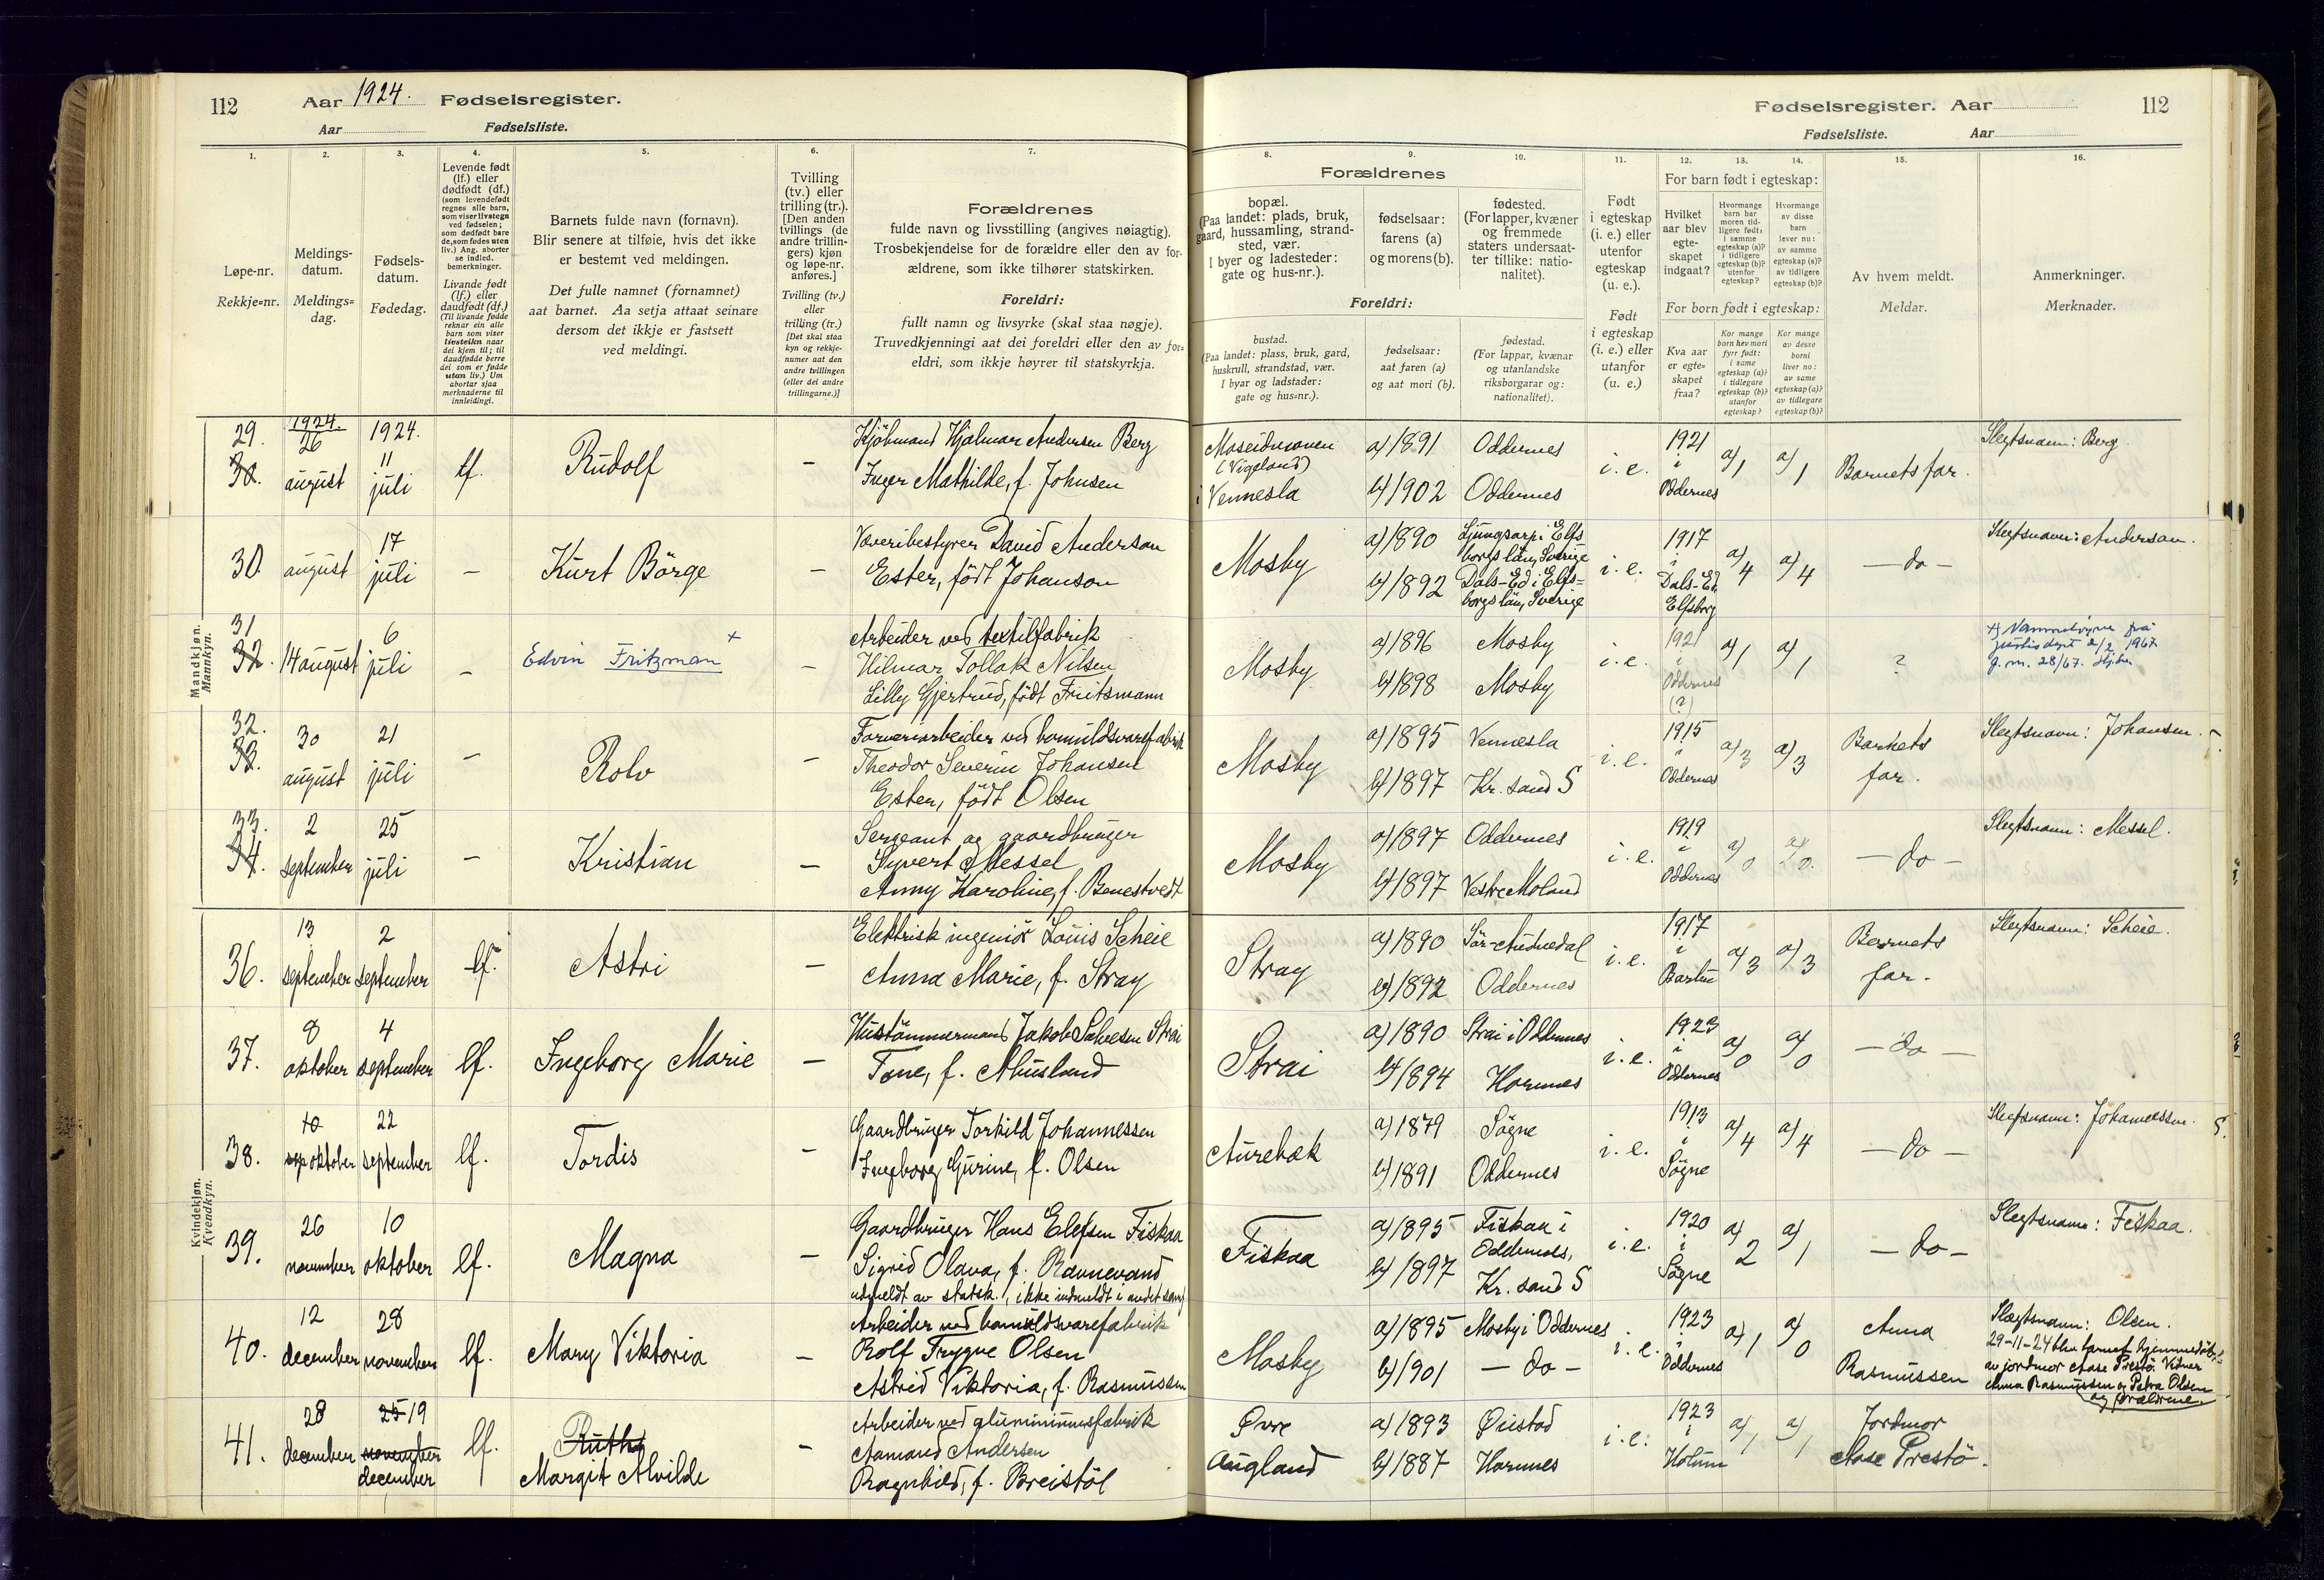 112 Aar 1924. Fødselsregister.
Aar Fødselsliste.
Fødselsregister. Aar 112
Fødselsliste. Aar
1. 2. 3. 4. 5. 6. 7.
8. 9. 10. 11. 12. 13. 14. 15. 16.
Løpe-nr.
Rekkje-nr.
Meldings-
datum.
Meldings-
dag.
Fødsels-
datum.
Fødedag.
Levende født
(lf.) eller
dødfødt (df.)
(som levendefødt
regnes alle barn,
som viser livstegn
ved fødselen;
som dødfødt bare
de, som fødes uten
liv.) Ang. aborter
se indled.
bemerkninger.
Livande født
(lf.) eller
daudfødt (df.)
(Til livande fødde
reknar ein alle
barn som viser
livsteikn naar
dei kjem til; til
daudfødde berre
dei som er fødde
utan liv.) Um
abortar sjaa
merknaderne til
innleidingi.
Barnets fulde navn (fornavn).
Blir senere at tilføie, hvis det ikke
er bestemt ved meldingen.
Det fulle namnet (fornamnet)
aat barnet. Aa setja attaat seinare
dersom det ikkje er fastsett
ved meldingi.
Tvilling
(tv.) eller
trilling (tr.).
[Den anden
tvillings (de
andre trillin-
gers) kjøn
og løpe-nr.
anføres.]
Tvilling (tv.)
eller
trilling (tr.)
[Det skal staa
kyn og rekkje-
numer aat den
andre tvillingen
(eller dei andre
trillingarne.)]
Forældrenes
fulde navn og livsstilling (angives nøiagtig).
Trosbekjendelse for de forældre eller den av for-
ældrene, som ikke tilhører statskirken.
Foreldri:
fullt namn og livsyrke (skal staa nøgje).
Truvedkjenningi aat dei foreldri eller den av for-
eldri, som ikkje høyrer til statskyrkja.
Forældrenes
bopæl.
(Paa landet: plads, bruk,
gaard, hussamling, strand-
sted, vær.
I byer og ladesteder:
gate og hus-nr.).
fødselsaar:
farens (a)
og morens (b).
fødested.
(For lapper, kvæner
og fremmede
staters undersaat-
ter tillike: natio-
nalitet).
Foreldri:
bustad.
(Paa landet: plass, bruk, gard,
huskrull, strandstad, vær.
I byar og ladstader:
gate og hus-nr.).
fødselsaar:
aat faren (a)
og aat mori (b).
fødestad.
(For lappar, kvænar
og utanlandske
riksborgarar og:
nationalitet).
Født
i egteskap
(i. e.) eller
utenfor
egteskap
(u. e.).
Født
i egteskap
(i. e.) eller
utanfor
(u. e.)
For barn født i egteskap:
Hvilket
aar blev
egte-
skapet
indgaat?
Hvormange
barn har
moren tid-
ligere født:
i samme
egteskap (a)?
i tidligere
egteskap (b)?
utenfor
egteskap?
Hvormange
av disse
barn
lever nu:
av samme
egteskap (a)?
av tidligere
egteskap (b)?
For born født i egteskap:
Kva aar
er egte-
skapet
fraa?
Kor mange
born hev mori
fyrr født:
i same
egteskap (a)?
i tidlegare
egteskap (b)?
utanfor
egteskap?
Kor mange
av desse
borni
liver no:
av same
egteskap (a)?
av tidlegare
egteskap (b)?
Av hvem meldt.
Meldar.
Anmerkninger.
Merknader.
Mandkjøn.
Mannkyn.
29. 30. 1924. 26 august 1924. 11 juli lf. Rudolf –
Kjöbmand Hjalmar Andersen Berg
Inger Mathilde, f. Johnsen
(Vigeland)
i Vennesla
a) 1891 Oddernes
b) 1902 Oddernes
i. e. 1921 i Oddernes a) 1 a) 1 Barnets far. Slegtsnavn: Berg.
30. august 17 juli – Kurt Börge –
Væveribestyrer David Anderson
Ester, född Johanson
Mosby
a) 1890 Ljungsarp i Elfs
borgs län, Sverige
b) 1892 Dals-Ed i Elfs-
borgs län, Sverige
i. e. 1917 i Dals-Ed, Elfsborg a) 4 a) 4 – do – Slegtsnavn: Anderson.
31 32. 14 august 6 juli – Edvin Fritzman + –
Arbeider ved textilfabrik
Hilmar Tollak Nilsen
Lilly Gjertrud, födt Fritsmann
Mosby
a) 1896 Mosby
b) 1898 Mosby
i. e. 1921 i Oddernes (?) a) 1 a) 1 ?
2/2 1967
28/67.
32. 33. 30 august 21 juli – Rolv –
Farveriarbeider ved bomuldsvarefabrik
Theodor Severin Johansen
Ester, födt Olsen
Mosby
a) 1895 Vennesla
b) 1897 Kr. sand S
i. e. 1915 i Oddernes a) 3 a) 3 Barnets far. Slegtsnavn: Johansen.
33. 34. 2 september 25 juli – Kristian –
Sergeant og gaardbruger
Syvert Messel
Anny Karoline, f. Benestvedt
Mosby
a) 1897 Oddernes
b) 1897 Vestre Moland
i. e. 1919 i Oddernes a) 0 a) 0. – do – Slegtsnavn: Messel.
Kvindekjøn.
Kvendkyn.
36. 13 september 2 september lf. Astri –
Elektrisk ingeniör Louis Scheie
Anna Marie, f. Stray
Stray
a) 1890 Sör-Audnedal
b) 1892 Oddernes
i. e. 1917 i a) 3 a) 3 Barnets far. Slegtsnavn: Scheie.
37. 8 oktober 4 september lf. Ingeborg Marie –
Hustömmermand Jakob Salvesen Strai
Tone, f. Ahusland
Strai
a) 1890 Strai i Oddernes
b) 1894 Hornnes
i. e. 1923 i Oddernes a) 0 a) 0 – do –
38. 10 oktober 22 september lf. Tordis –
Gaardbruger Torkild Johannessen
Ingeborg Gurine, f. Olsen
Aurebæk
a) 1879 Sögne
b) 1891 Oddernes
i. e. 1913 i Sögne a) 4 a) 4 – do – Slegtsnavn: Johannessen.
39. 26 november 10 oktober lf. Magna –
Gaardbruger Hans Elefsen Fiskaa
Sigrid Olava, f. Ravnevand
udmeldt av statsk., ikke indmeldt i andet samf
Fiskaa
a) 1895 Fiskaa i Oddernes,
b) 1897 Kr. sand S
i. e. 1920 i Sögne a) 2 a) 1 – do – Slegtsnavn: Fiskaa.
40. 12 december 28 november lf. Mary Viktoria –
Arbeider ved bomuldsvarefabrik
Rolf Trygve Olsen
Astrid Viktoria, f. Rasmussen
Mosby
a) 1895 Mosby i Oddernes
b) 1901 – do –
i. e. 1923 i Oddernes a) 1 a) 0 Anna Rasmussen
Slegtsnavn: Olsen.
29-11-24 blev barnet hjemmedöbt
av jordmor Aase Prestö. Vidner
Anna Rasmussen og Petra Olsen
og forældrene.
41. 28 december 25 19 november december lf. Ruth Margit Alvilde –
Arbeider ved aluminiumsfabrik
Aamund Andersen
Ragnhild, f. Breistöl
Øvre Augland
a) 1893 Øiestad
b) 1887 Hornnes
i. e. 1923 i Holum a) 1 a) 1 Jordmor Aase Prestö.